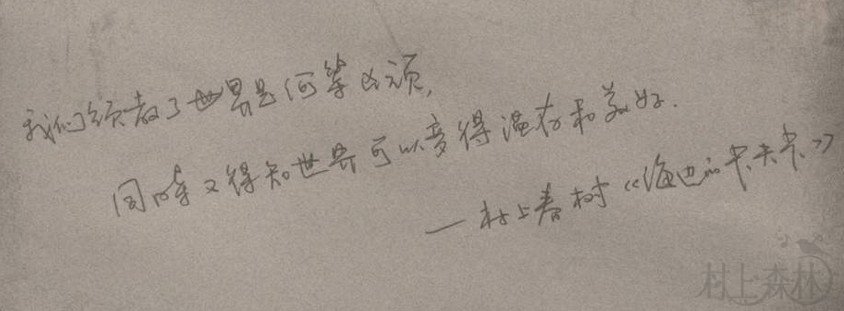 我们领教了世界是何等凶顽,
同时又得知世界可以变得温存和美好.
—村上春树《海边的卡夫卡》
村上森林